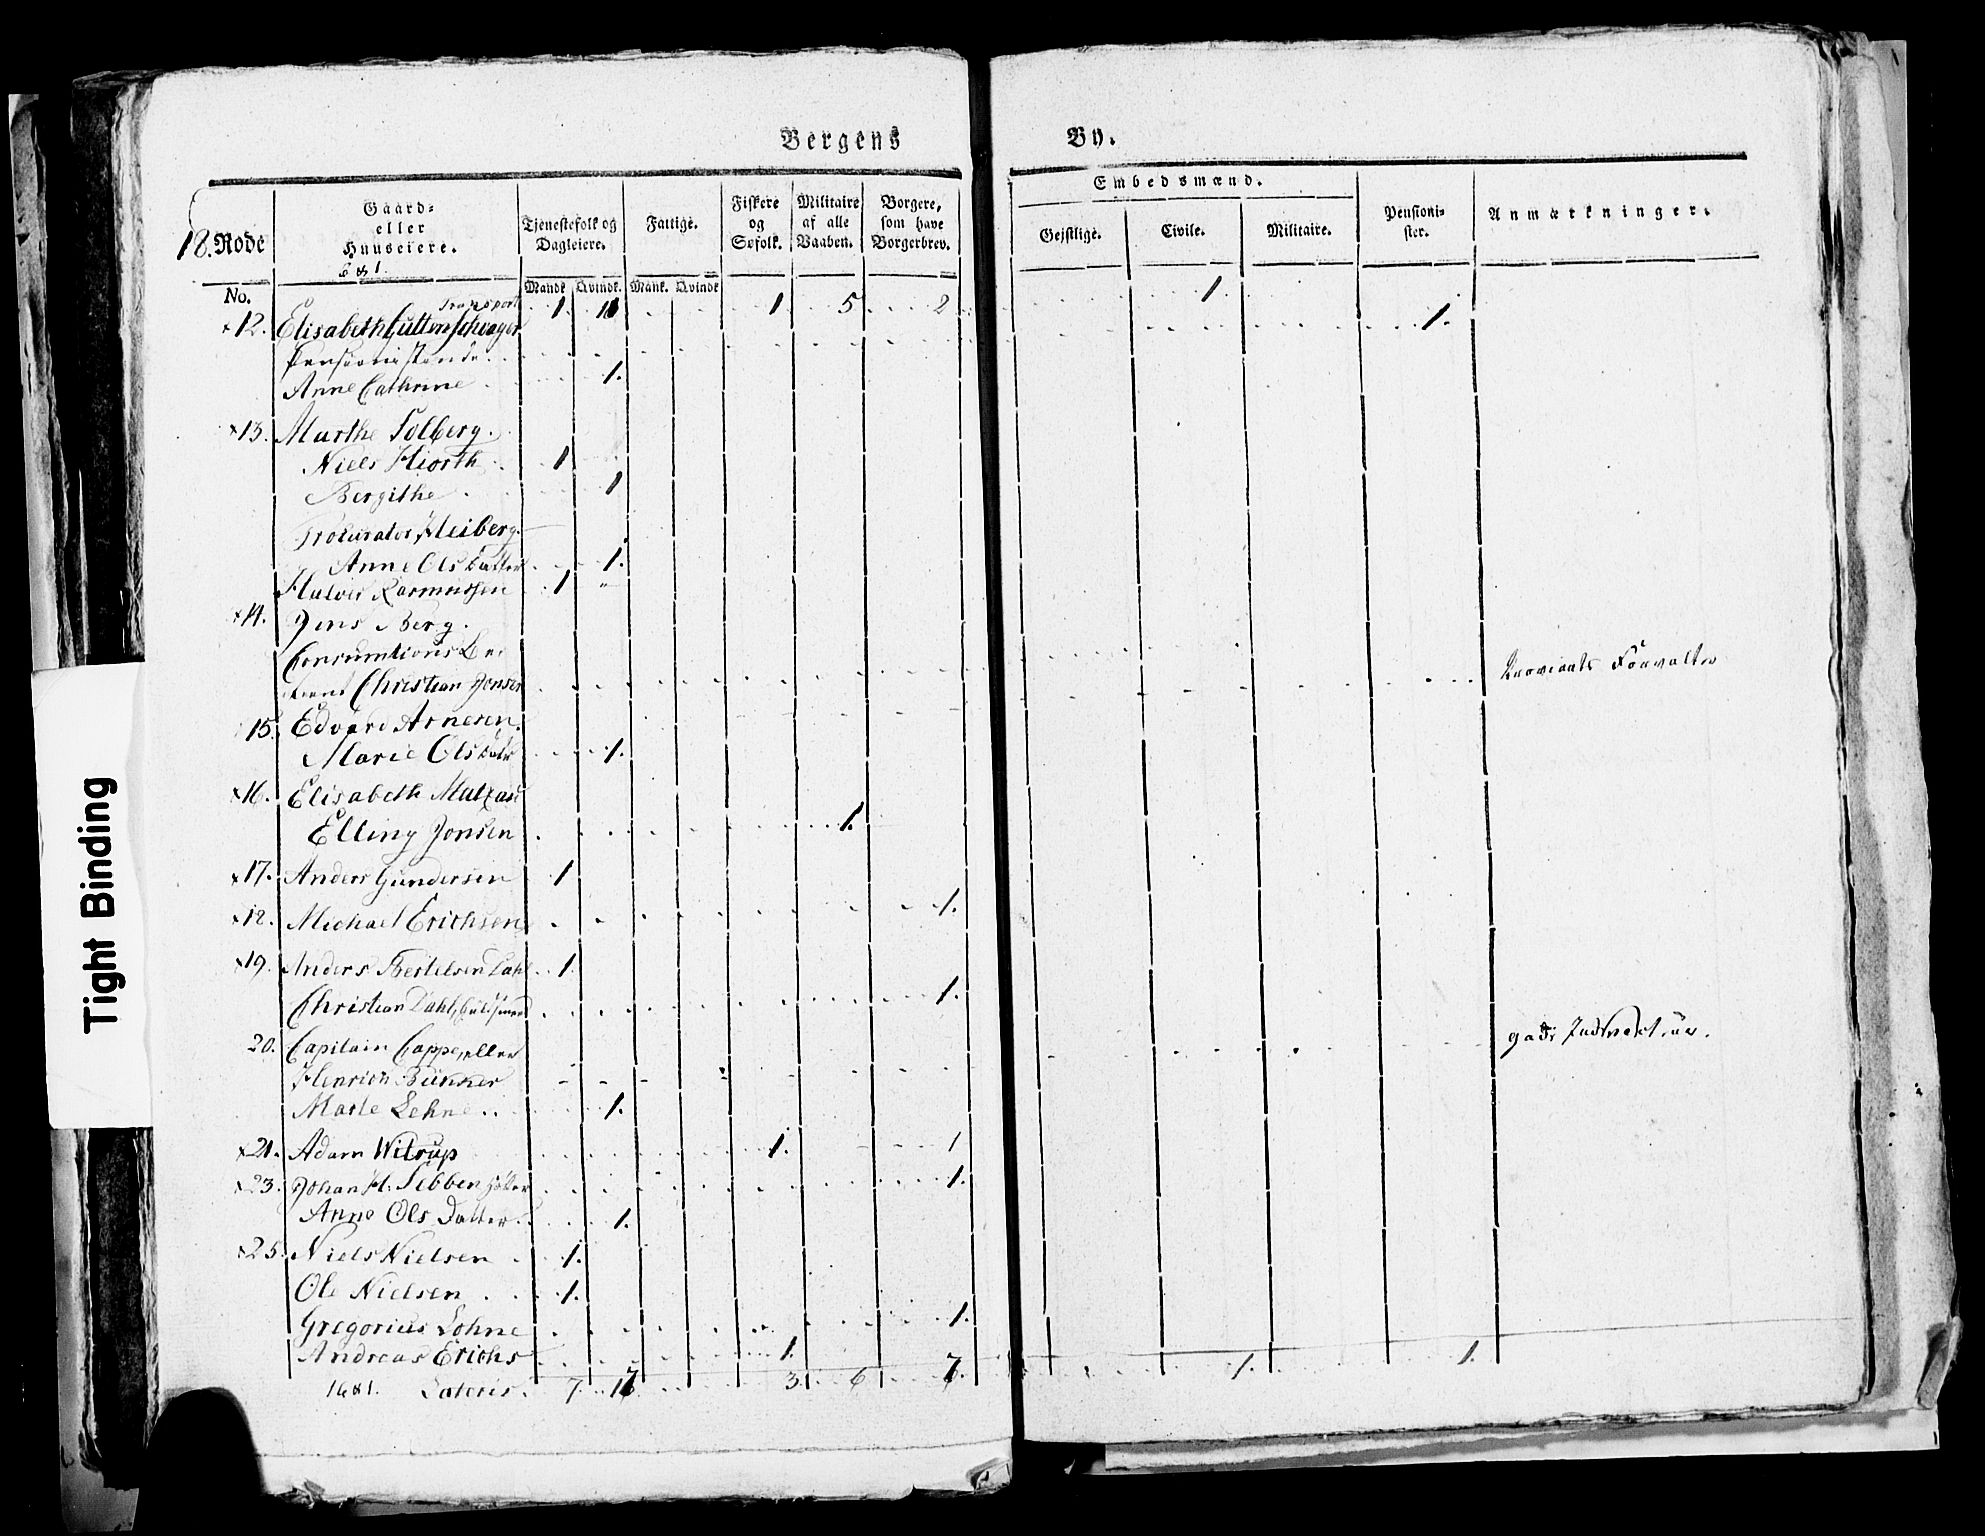 Bergens By.
18. Rode
Gaard= eller Huuseiere.
Tjenestefolk og Dagleiere.
Fattige.
Fiskere og Søfolk.
Militaire af alle Vaaben.
Borgere, som have Borgerbrev.
Embedsmænd.
Gejstlige. Civile. Militaire.
Pensioni= ster.
Anmærkninger.
No. Mandk Qvindk. Mank. Qvindk
6 & 1.
Transport 1 11 1 5 2 1
12. Elisabeth 1.
Pensionistende
Anne Cathrine 1.
13. Marthe Solberg.
Niels Hiorth 1
Bergithe 1
Procurator Heiberg
Anne Olsdatter 1.
Halvor Rasmussen 1 "
14. Jens Berg.
Consumtions Be
tient Christian Jonsen Proviants Forvalter
15. Edvard Arnesen.
Marie Olsdatr 1.
16. Elisabeth
Elling Jonsen 1.
17. Anders Gundersen 1
18. Michael Erichsen 1.
19. Anders Bertelsen Dahl 1.
Christian Dahl, Guldsmed 1.
20. Capitain Cappellen
Henrich Bünner
Marte Lehne 1.
21. Adam Witrup 1. 1
23. Johan H. Sebben 1.
Anne Ols Datter 1.
25. Niels Nielsen 1.
Ole Nielsen 1.
Gregorius Lohne 1.
Andreas Erichs 1.
16&1. Lateris. 7 3 6 7 1. 1.
Tight Binding